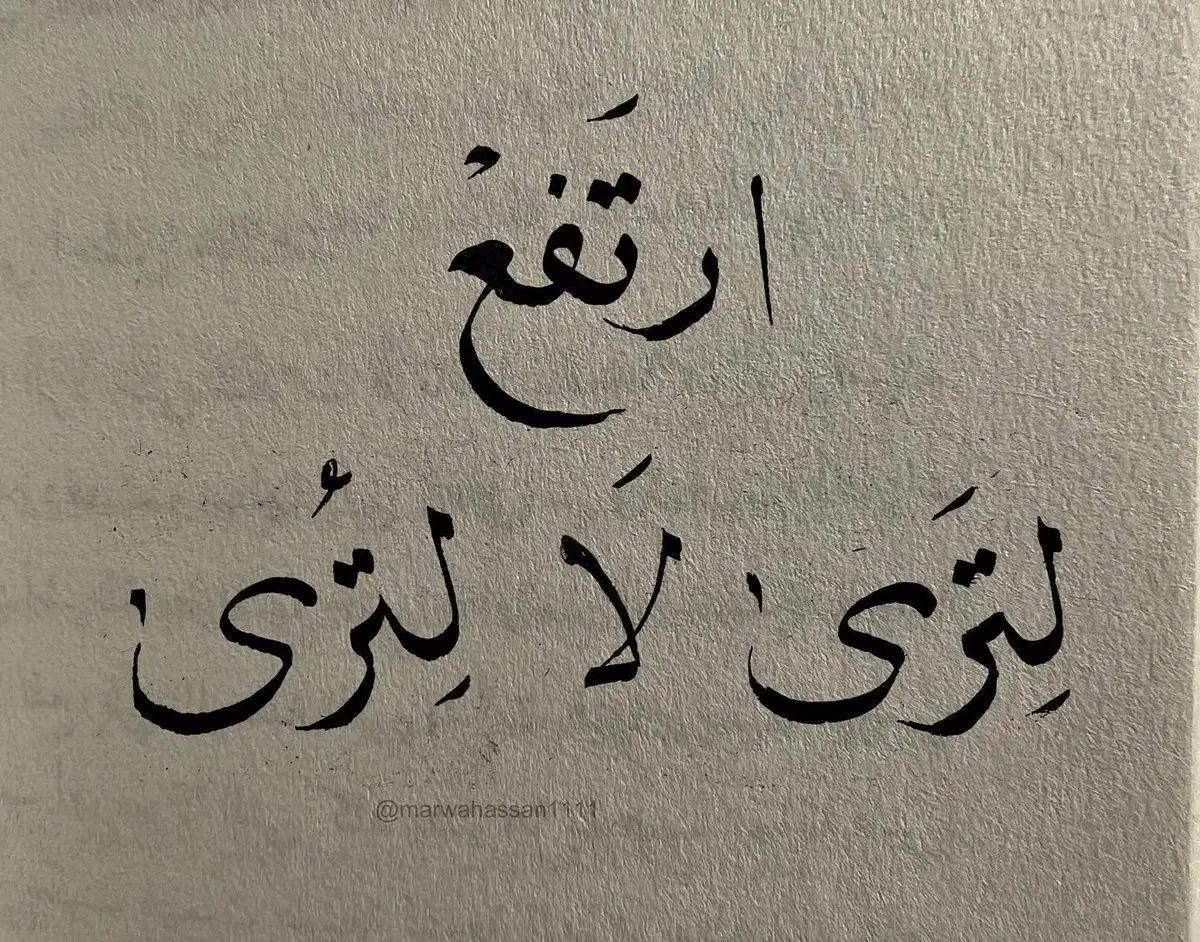 ارتَفعْ
لِتَرى لَا لِتُرى
@marwahassan1111